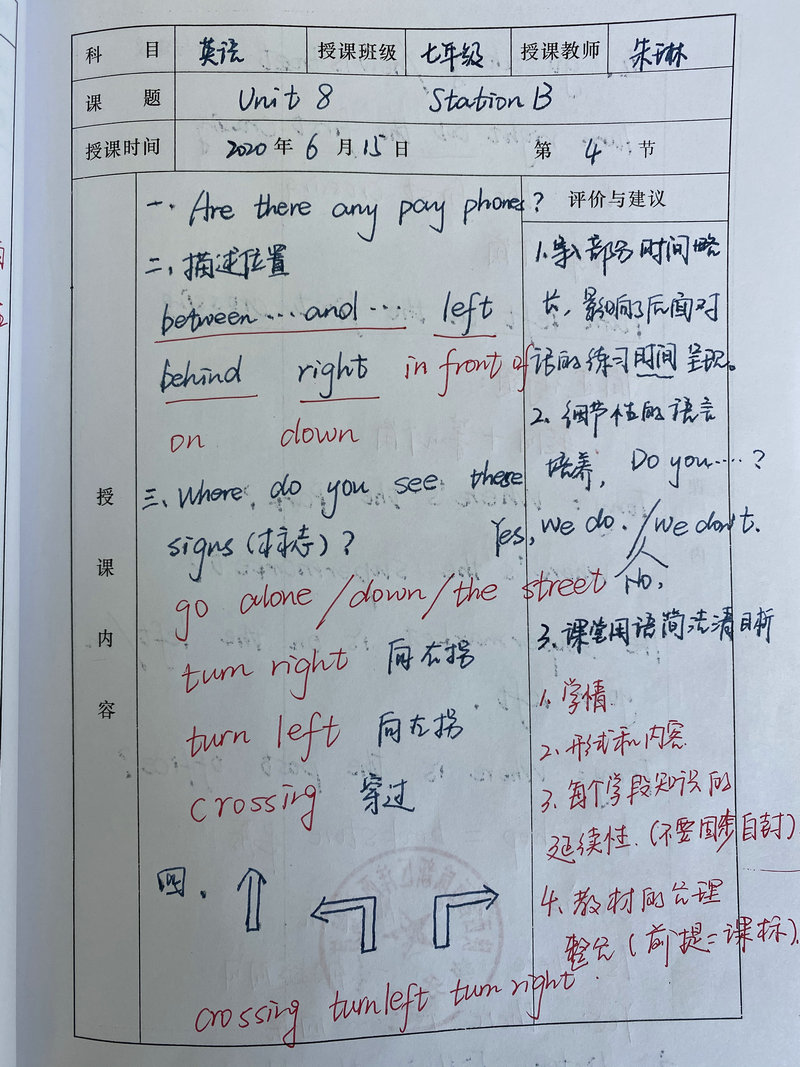 科 目 英语 授课班级 七年级 授课教师 朱琳
课 题 Unit 8 Station B
授课时间 2020 年 6 月 15 日 第 4 节
授课内容
一. Are there any pay phones?
二, 描述位置
between ... and ... left
behind right in front of
on down
三. Where do you see these
signs (标志)?
go alone /down/the street
turn right 向右拐
turn left 向左拐
crossing 穿过
四.
crossing turn left turn right
评价与建议
1. 导入部分时间略
长, 影响了后面对
话的练习时间呈现。
2. 细节性的语言
培养, Do you.....?
Yes, we do. /we don't.
No,
3. 课堂用语简洁清目晰
1. 学情
2. 形式和内容
3. 每个学段知识的
延续性. (不要固步自封)
4. 教材的合理
整合 (前提=课标).